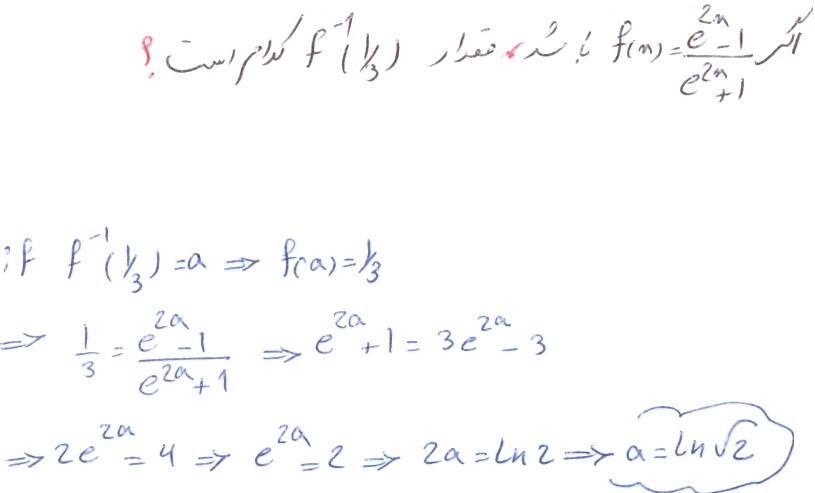 اگر f(x) = (e^2x - 1)/(e^2x + 1) باشد، مقدار f^-1(1/3) کدام است؟
if f^-1(1/3) = a ⇒ f(a) = 1/3
⇒ 1/3 = (e^2a - 1)/(e^2a + 1) ⇒ e^2a + 1 = 3e^2a - 3
⇒ 2e^2a = 4 ⇒ e^2a = 2 ⇒ 2a = ln 2 ⇒ a = ln √2